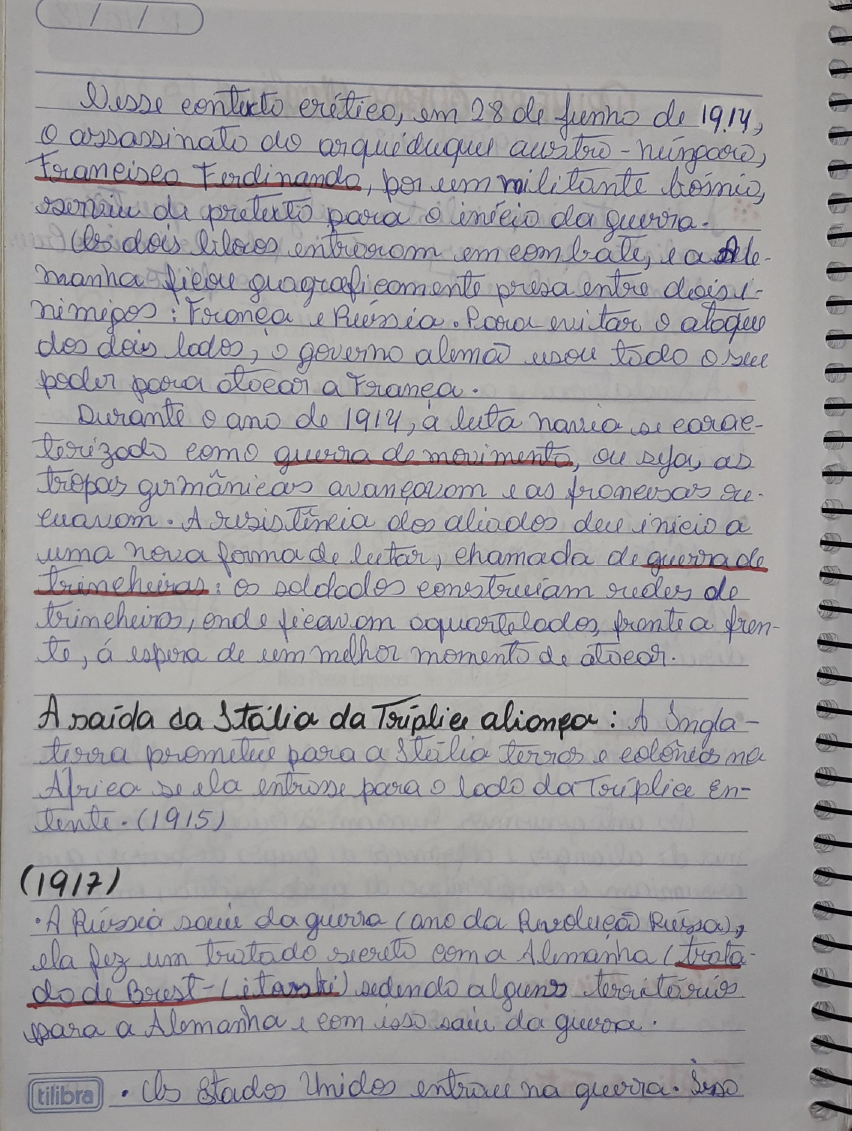 / /
Nesse contexto crítico, em 28 de Junho de 1914,
o assassinato do arquiduque austro-húngaro,
Francisco Ferdinando, por um militante bósnio,
serviu de pretexto para o início da guerra.
Os dois blocos entraram em combate, e a Ale-
manha ficou guagraficamente presa entre dois i-
nimigos: França e Rússia. Para evitar o ataque
dos dois lados, o governo alemão usou todo o seu
poder para atacar a França.
Durante o ano de 1914, a luta havia se carac-
terizado como guerra de movimento, ou seja, as
tropas germânicas avançavam e as francesas re-
cuavam. A resistência dos aliados deu inicio a
uma nova forma de lutar, chamada de guerra de
trincheiras: os soldados construíam redes de
trincheiras, onde ficavam aquartelados, frente a fren-
te, á espera de um melhor momento de atacar.
A saída da Itália da Tríplice aliança: A Ingla-
terra prometeu para a Itália terras e colônias na
África se ela entrasse para o lado da Tríplice En-
tente. (1915)
(1917)
• A Rússia saiu da guerra (ano da Revolução Russa),
ela fez um tratado secreto com a Alemanha (trata-
do de Brest-Litovski) sedendo alguns territórios
para a Alemanha e com isso saiu da guerra.
tilibra • Os Estados Unidos entrou na guerra. Isso